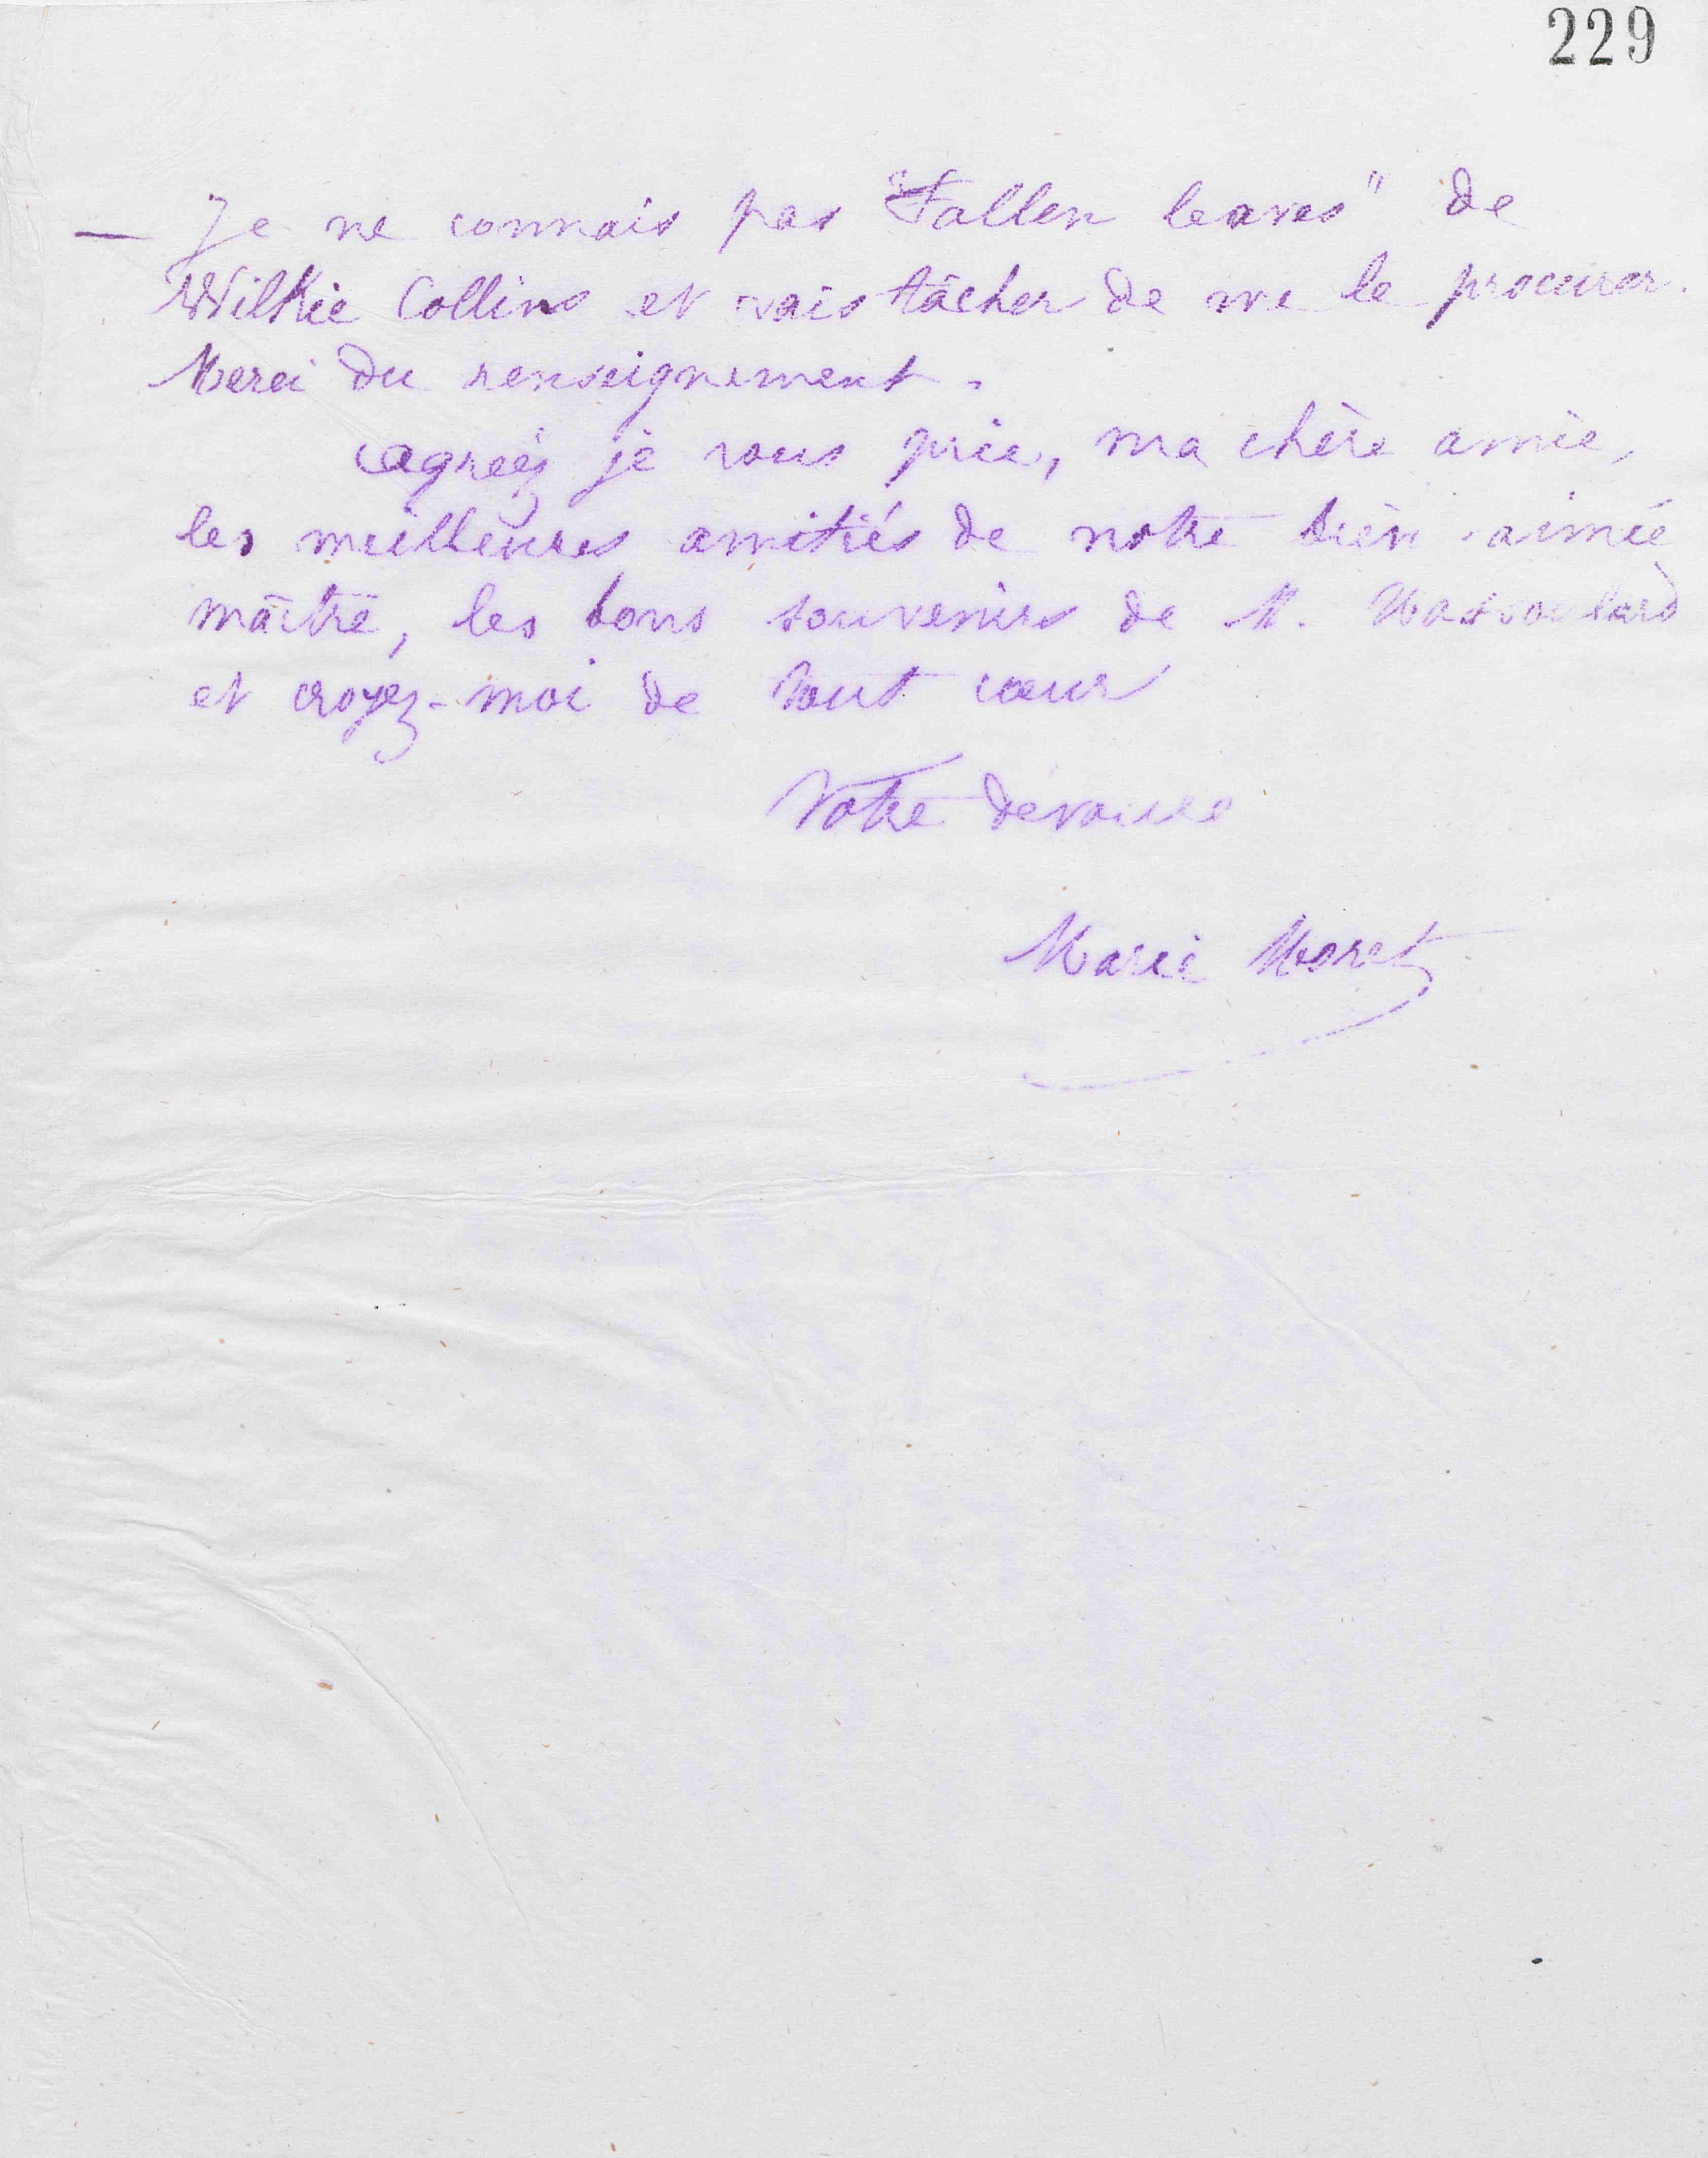 229
— Je ne connais pas "Fallen leaves" de
Wilkie Collins et vais tâcher de me le procurer.
Merci du renseignement.
Agréez je vous prie, ma chère amie,
les meilleures amitiés de notre bien-aimé
maître, les bons souvenirs de M.
et croyez-moi de tout cœur
Votre dévouée
Marie Moret